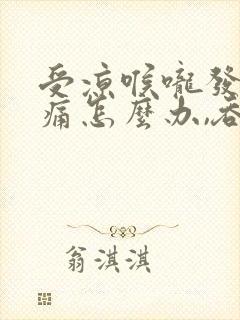 受涼喉嚨發
痛怎麼办,吞
翁淇淇